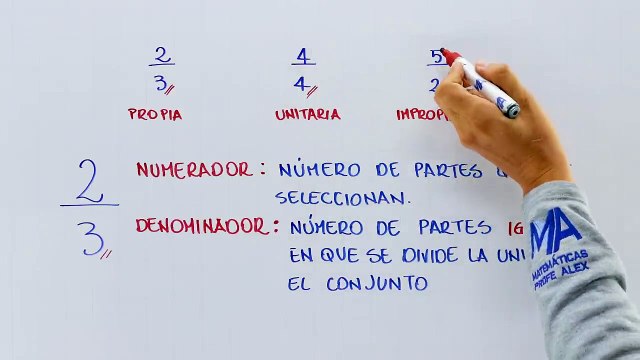 2 4 5
3 4 2
PROPIA UNITARIA
2 NUMERADOR: NÚMERO DE PARTES
SELECCIONAN.
3 DENOMINADOR: NÚMERO DE PARTES
EN QUE SE DIVIDE LA
EL CONJUNTO
MA
MATEMÁTICAS
PROFE ALEX